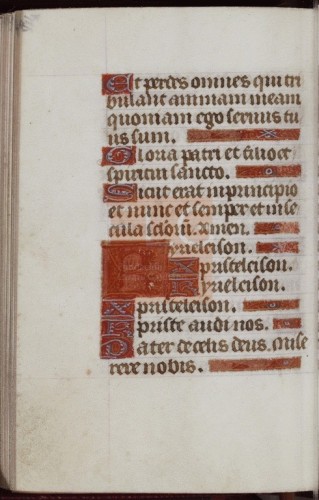 Et perdes omnes qui tri
bulant animam meam
quoniam ego servus tu
us sum.
Gloria patri et filio et
spiritui sancto.
Sicut erat in principio
et nunc et semper et in se
cula seculoru. Amen.
Kyrieleison.
Xpristeleison.
Kyrieleison.
Xpristeleison.
Xpriste audi nos.
Pater de celis deus. mise
rere nobis.